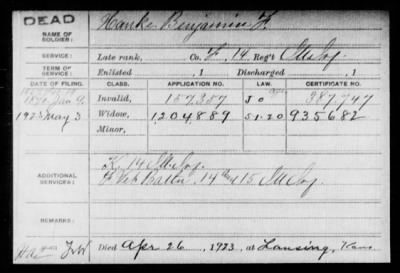 DEAD
NAME OF SOLDIER: Hanke Benjamin F.
SERVICE: Late rank, Co. F, 14 Reg't Ill Inf
TERM OF SERVICE: Enlisted , 1 Discharged , 1
DATE OF FILING. CLASS. APPLICATION NO. LAW. CERTIFICATE NO.
Jan 9, Invalid, 157,357 387,747
1923 May 3 Widow, 1204889 5.1.20 935682
Minor,
ADDITIONAL SERVICES: K. 14 Ill Inf.
14 & 15 Ill Inf
REMARKS:
Died Apr 26, 1923, at Lansing, Kans